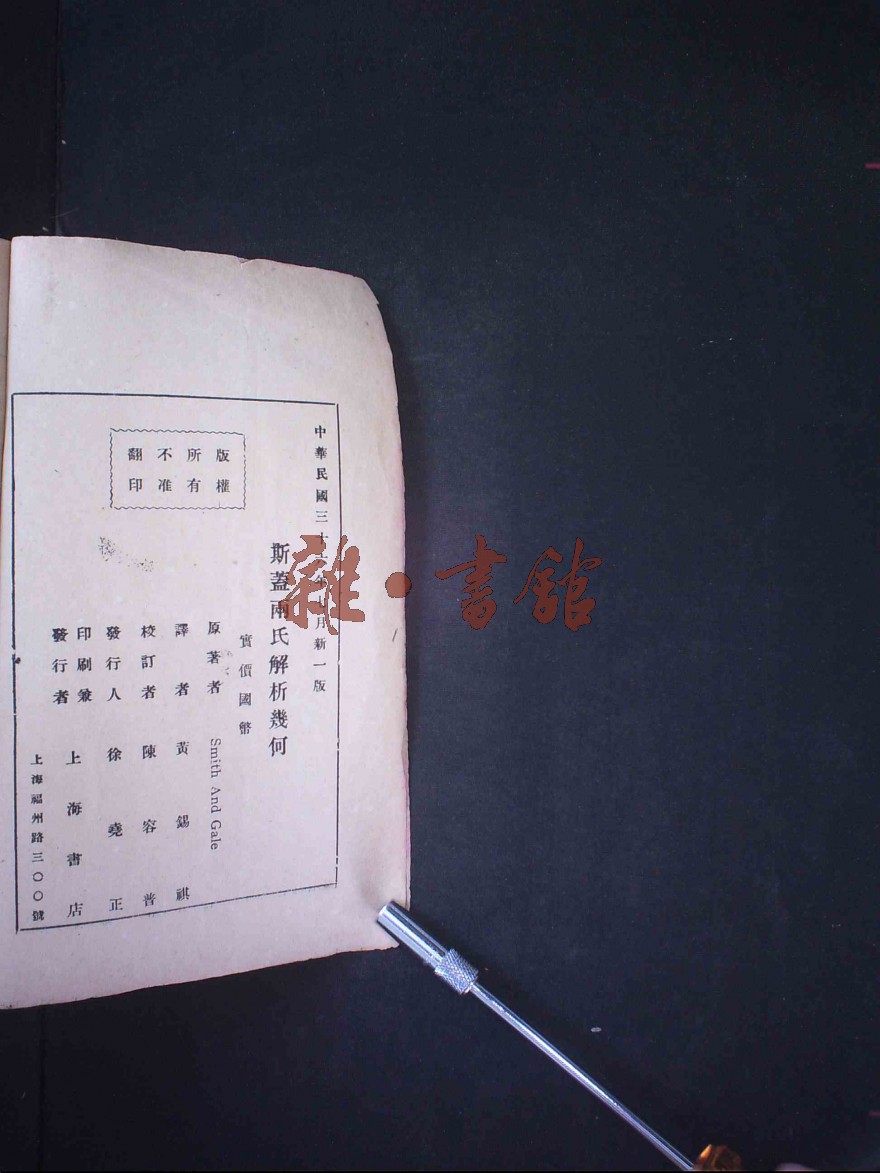 中華民國三十 年 月新一版
斯蓋兩氏解析幾何
實價國幣
版權
所有
不准
翻印
原著者 Smith And Gale
譯者 黃錫祺
校訂者 陳容普
發行人 徐堯正
印刷兼
發行者 上海書店
上海福州路三〇〇號
雜·書館